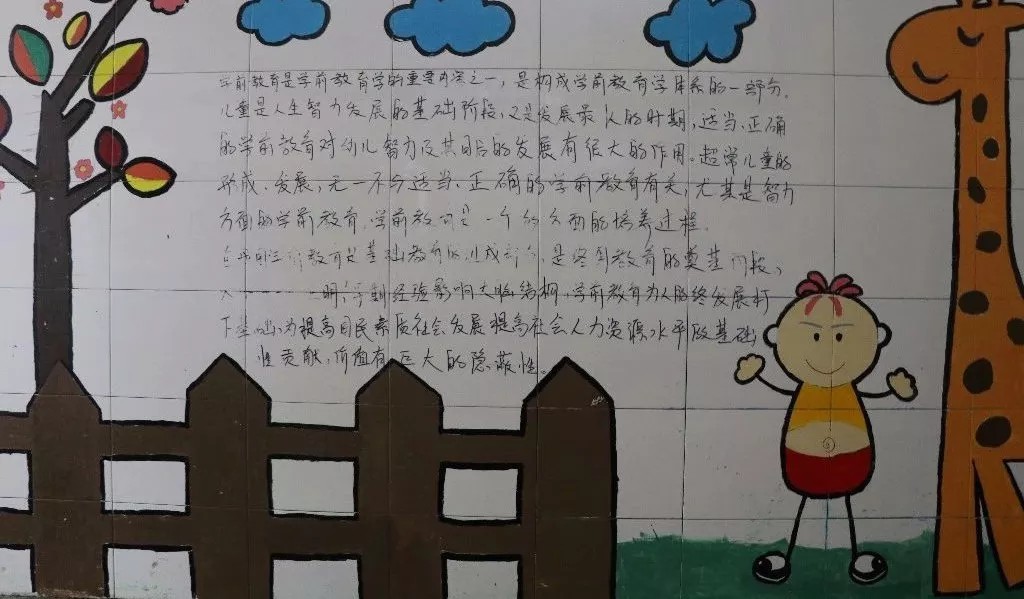 学前教育是学前教育学的重要内容之一，是构成学前教育学体系的一部分。
儿童是人生智力发展的基础阶段，又是发展最快的时期，适当、正确
的学前教育对幼儿智力及其日后的发展有很大的作用。超常儿童的
形成、发展，无一不与适当、正确的学前教育有关，尤其是智力
方面的学前教育，学前教育是一个的培养过程。
教育是基础教育的组成部分，是终身教育的奠基阶段，
明，早期经验影响大脑结构，学前教育为人的终发展打
下基础，为提高国民素质社会发展提高社会人力资源水平的基础
性贡献，价值有巨大的隐蔽性。